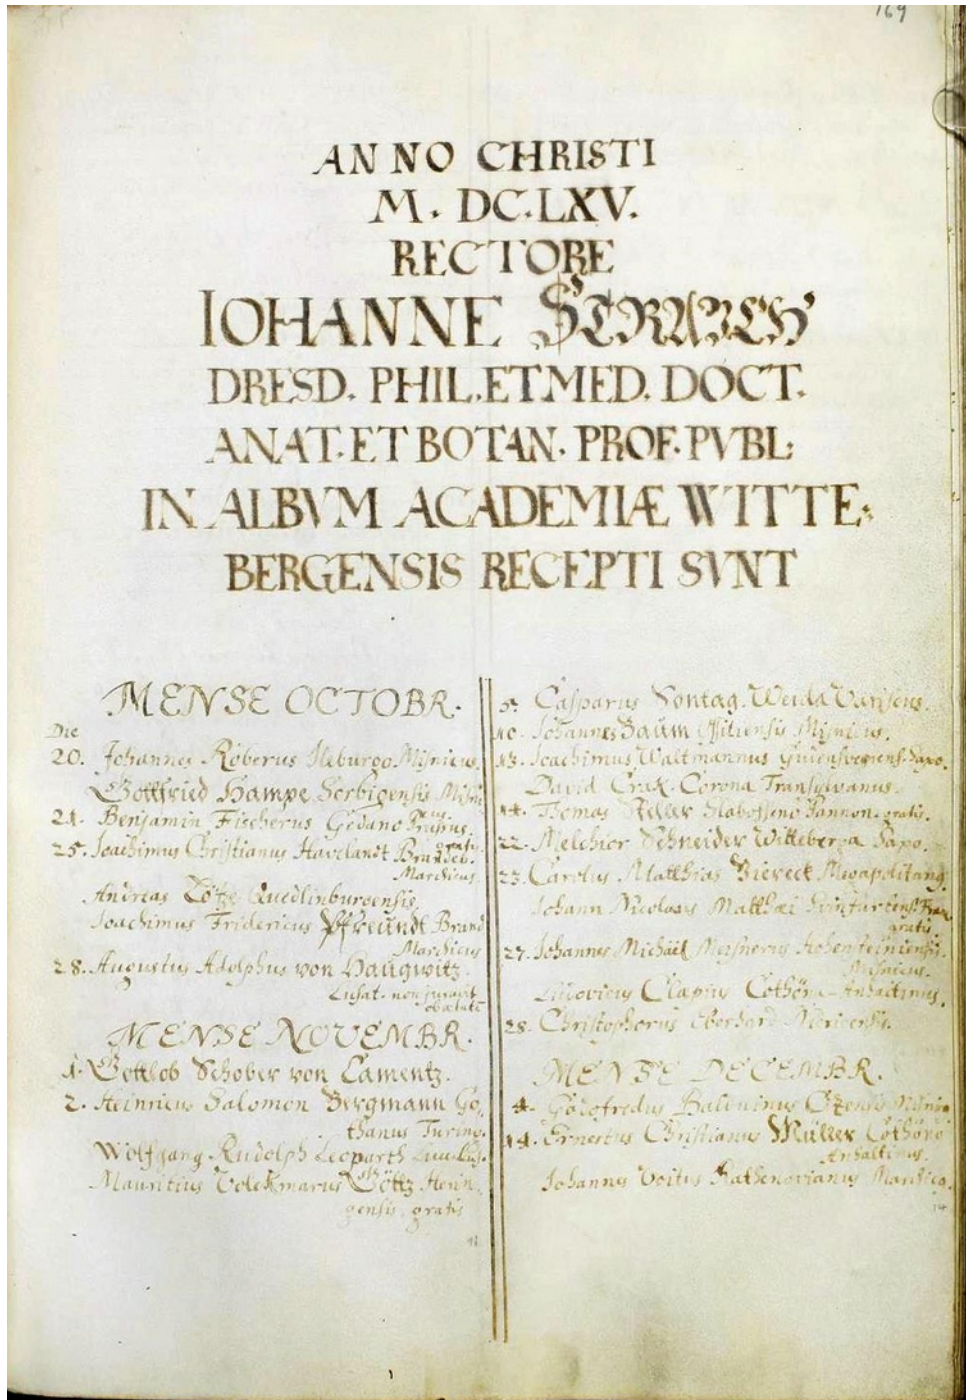 169
ANNO CHRISTI
M. DC.LXV.
RECTORE
IOHANNE STRAUCH
DRESD. PHIL. ET MED. DOCT.
ANAT. ET BOTAN. PROF. PVBL:
IN ALBVM ACADEMIÆ WITTE-
BERGENSIS RECEPTI SVNT
MENSE OCTOBR.
Die
20. Johannes Röberus Ileburgo Misnicus.
Gottfried Hampe Sorbigensis Misn
21. Benjamin Fischerus Gedano
25. Joachimus Christianus Havelandt
gratis
Marchicus
Andreas Quedlinburgensis.
Joachimus Fridericus Pfreundt Brand
Marchicus
28. Augustus Adolphus von Haugwitz.
Lusat. non juravit
MENSE NOVEMBR.
1. Gottlob Schober von Camentz.
2. Heinricus Salomon Bergmann Go-
thanus Turing.
Wolfgang Rudolph Leopart
Mauritius Volckmarus Götz Henn
gensis. gratis
5. Casparus Sontag. Weida Variscus.
10. Johannes Baum Misnicus.
13. Joachimus Waltmannus Saxo.
David Crax. Corona Transylvanus.
14. Thomas Steller Pannon. gratis.
22. Melchior Schneider Witteberga Saxo.
23. Carolus Matthias Viereck
Johann Nicolaus Matthæi
gratis
27. Johannes Michael Meisnerus Hohensteiniensis
Misnicus.
Ludovicus Clapius Anhaltinus.
28. Christophorus Eberhard
MENSE DECEMBR.
4. Godofredus Balduinus
14. Ernestus Christianus Müller Cothönô
Anhaltinus.
Johannes Voitus Rathenovianus